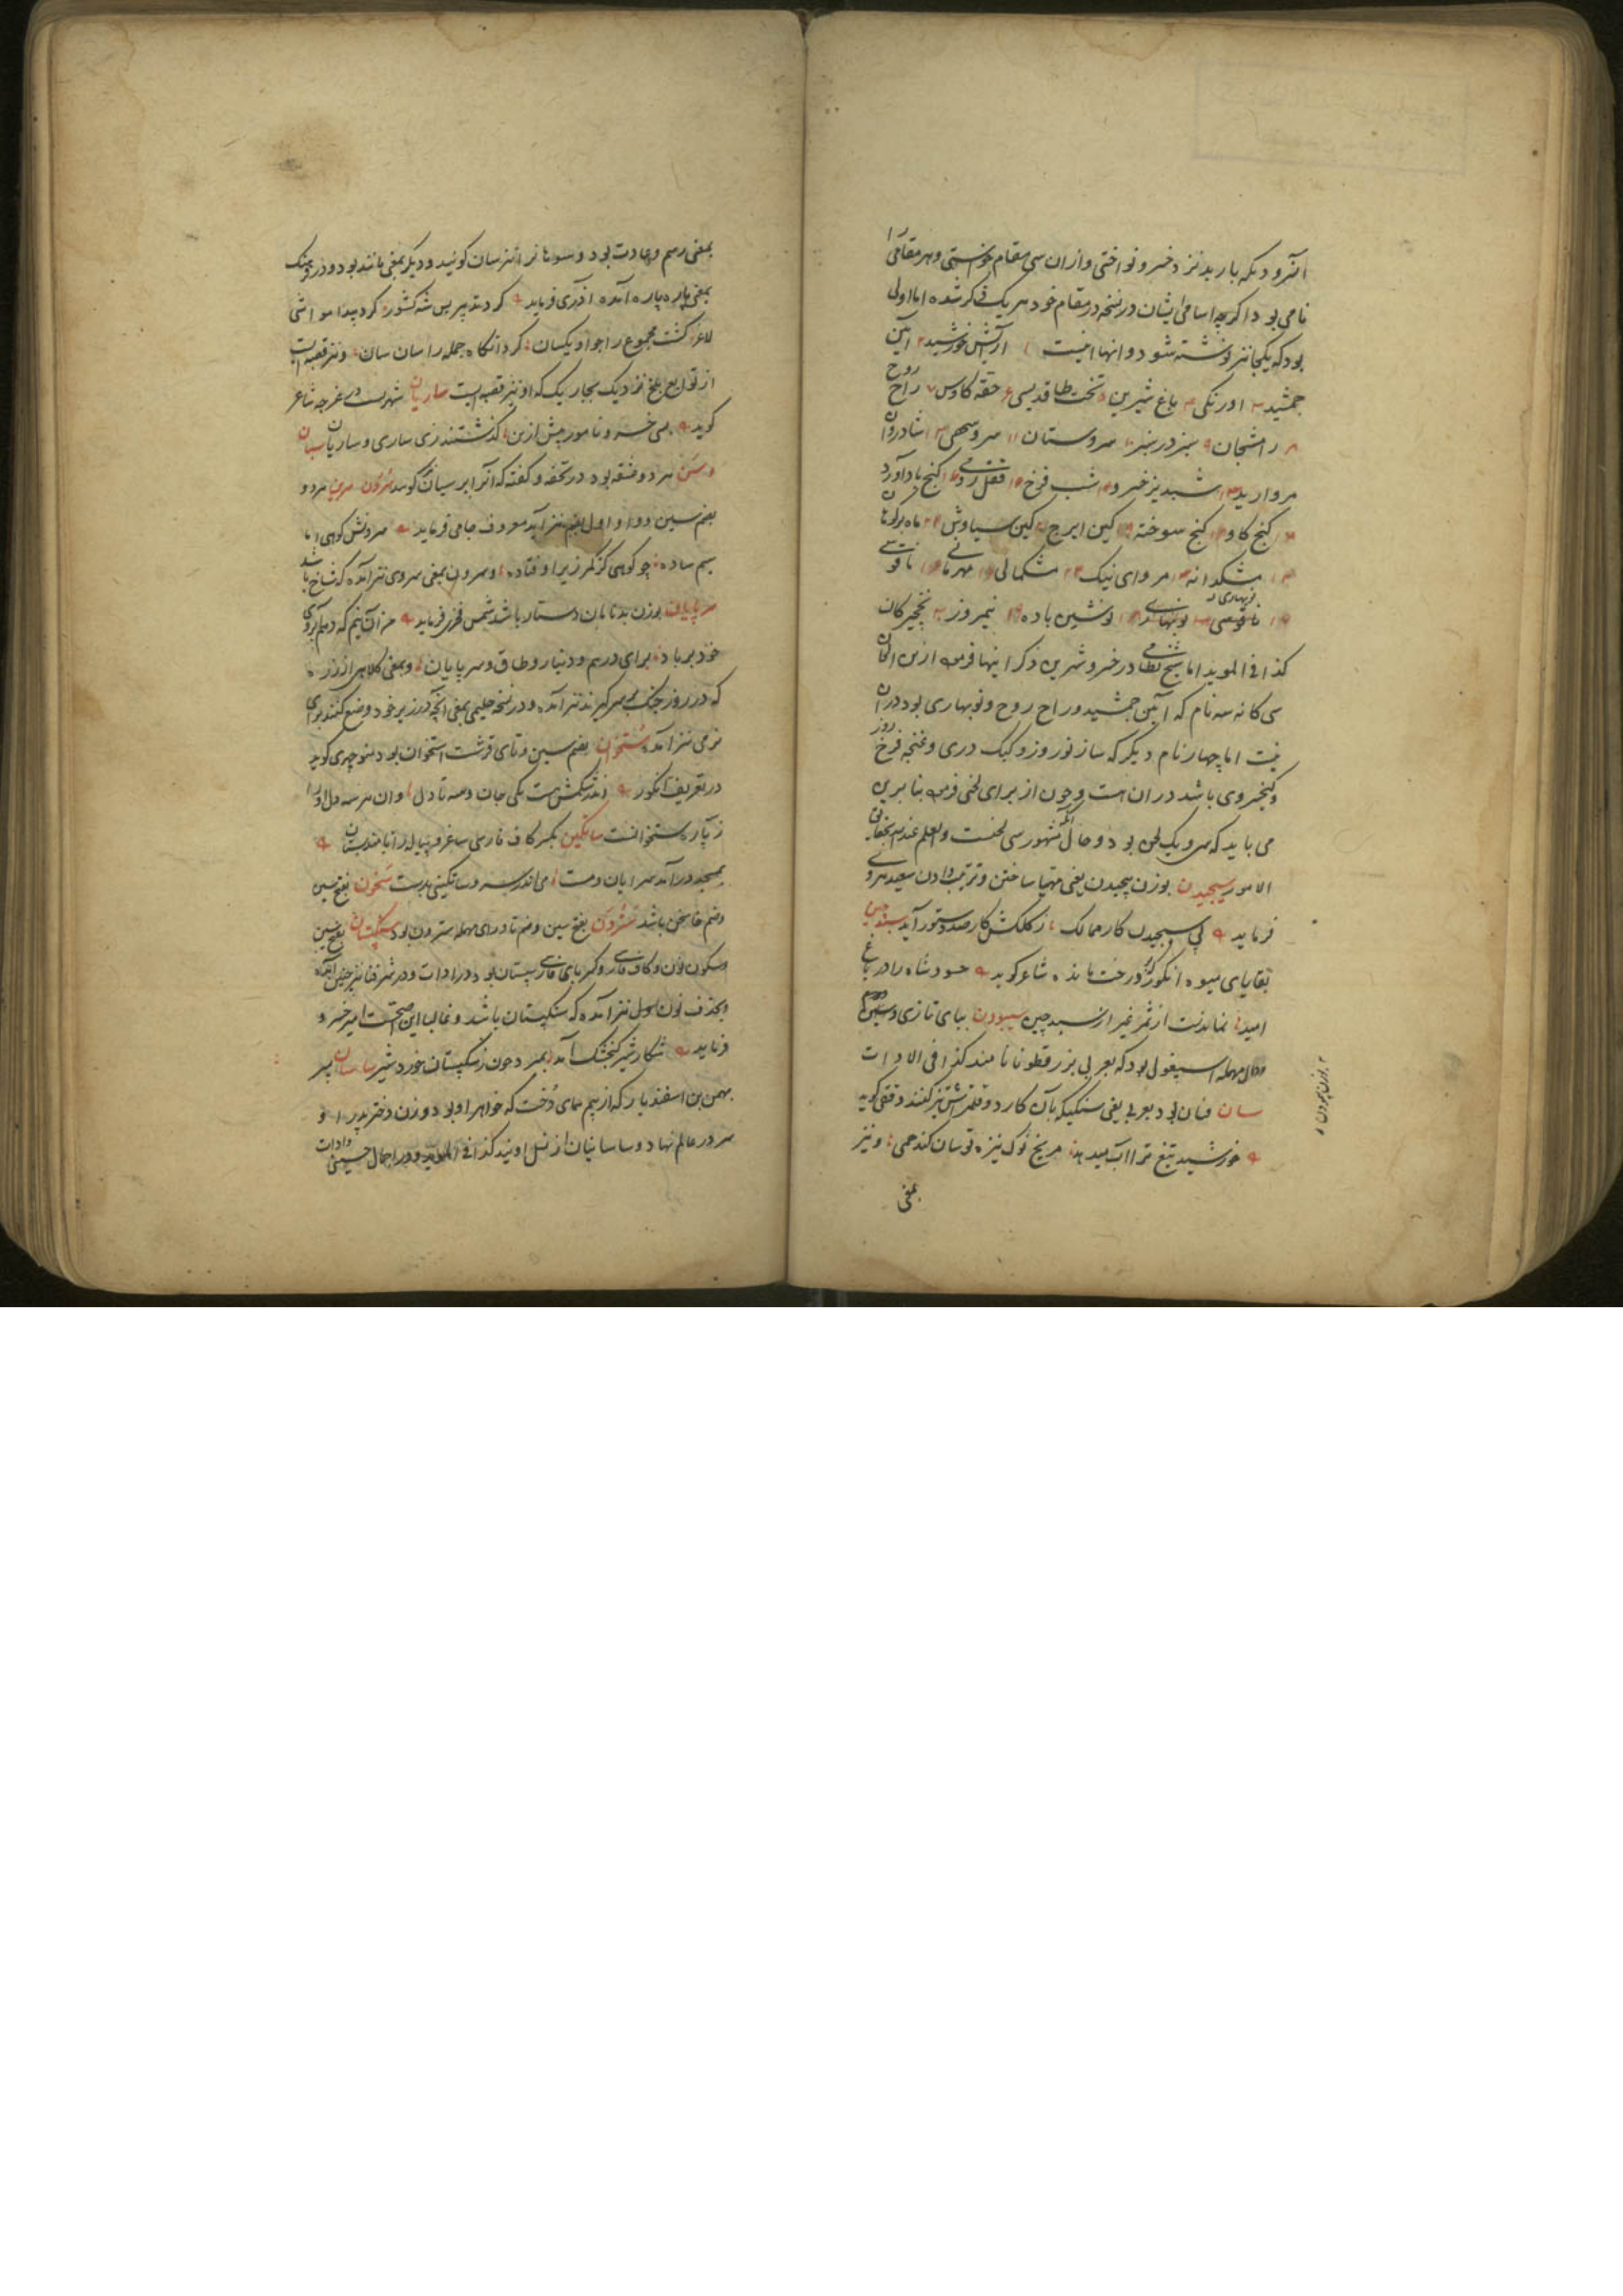 آنرو دیکه باربد نزد خسرو نواختی و ازان سی مقام خواستی و هر مقامی را
نامی بود اگرچه اسامی ایشان در نسخه در مقام خود هر یک ذکر شده اما اولی
بود که یکجا نیز نوشته شود و آنها اینست آرایش خورشید ۲ آیین
جمشید ۳ اورنگی ۴ باغ شیرین ۵ تخت طاقدیسی ۶ حقه کاوس ۷ راح روح
۸ رامشجان ۹ سبز در سبز ۱۰ سروستان ۱۱ سرو سهی ۱۲ شادروان
مروارید ۱۳ شبدیز ۱۴ شب فرخ ۱۵ قفل رومی ۱۶ گنج بادآورد
گنج کاو گنج سوخته کین ایرج کین سیاوش ماه برکوهان
مشکدانه مروای نیک مشکمالی مهربانی ناقوسی
نوبهاری نوشین باده نیمروز نخجیرکان
کذا فی الموید اما شیخ نظامی در خسرو و شیرین ذکر اینها فرموده ازین الحان
سی کانه سه نام که آیین جمشید و راح روح و نوبهاری بود دران
نیست اما چهار نام دیگر که ساز نوروز و کبک دری و غنچه فرخ روز
و کیخسروی باشد دران است و چون از برای لحنی فرموده بنا برین
می باید که سی و یک لحن بود و حال آنکه مشهور سی لحنست والعلم عند الله بحقایق
الامور سیجیدن بوزن پیچیدن یعنی مهیا ساختن و ترتیب دادن سعید هروی
فرماید پی سیجیدن کار ممالک ز کلکش کار صد دستور آید سبدچین
بقایای میوه انکور که در درخت ماند شاعر کوید حسود شاه را در باغ
امید نماندست از ثمر غیر از سبدچین سیبودن ببای تازی و سین
ودال مهمله اسپغول بود که بعربی بزر قطونا نامند کذا فی الادات
سان فسان بود بعربی یعنی سنکیکه بآن کارد و قلمتراش تیز کنند دقیقی کوید
خورشید تیغ ترا آب میدهد مریخ نوک نیزه تو سان کند همی و نیز
بمعنی
بوزن سپردن
بمعنی رسم و عادت بود و سوهان را نیز سان کویند و دیگر بمعنی مانند بود و در فرهنک
بمعنی پاره پاره آمده آذری فرماید کردند پس شه کشور کرد پیدا مواشی
لاغر کشت مجموع را جو او یکسان کرد آنکاه جمله را سان سان و نیز قصبه ایست
از توابع بلخ نزدیک بچاریک که او نیز قصبه ایست ساریان شهریست در غرجه شاعر
کوید بسی خسرو نامور پیش ازین کذشتند زی ساری و ساریان سبان
وسن هر دو فشقه بود در تحفه و کفته که آنرا ابرسیان کویند سرون سرین هر دو
بضم سین و واو اول بفتح نیز آید معروف جامی فرماید سرونش کوهی اما
سیم ساده چو کوهی کز کمر زیر اوفتاده و سرون بمعنی سروی نیز آمده که شاخ باشد
سرپایان بوزن بدنامان دستار باشد شمس فخری فرماید من آن نیم که دهم آبروی
خود برباد برای درهم و دینار و طاق و سرپایان و بمعنی کلاهی از زره
که در روز جنک بر سر گیرند نیز آمده و در نسخه حلیمی بمعنی آنچه در زیر خود وضع کنند برای
نرمی نیز آمده ستخوان بضم سین و تای قرشت استخوان بود منوچهری کوید
در تعریف انکور اندر شکمش هست یکی جان و سه تا دل وان هر سه دل او را
ز سه پاره ستخوانست ساتکین بکسر کاف فارسی ساغر و پیاله را نامند
بمسجد درآمد سرایان و مست می اندر سر و ساتکینی بدست سخون بفتح سین
وضم خا سخن باشد سترون بفتح سین و ضم تا و رای مهمله سترون بود سنکپستان بفتح سین
وسکون نون و کاف فارسی و کسر بای فارسی سپستان بود در ادات و در شرفنامه نیز چنین آمده
وبحذف نون اول نیز آمده که سکپستان باشد و غالبا این صحیحست امیر خسرو
فرماید شکار شیر کنجشک آمد بمیرد چون ز سکپستان خورد شیر ساسان پسر
بهمن بن اسفندیار که از بیم همای دخت که خواهر او بود و زن و دختر پدر او
سر در عالم نهاد و ساسانیان از نسل اویند کذا فی الموید و در اجمال حسینی و ادات